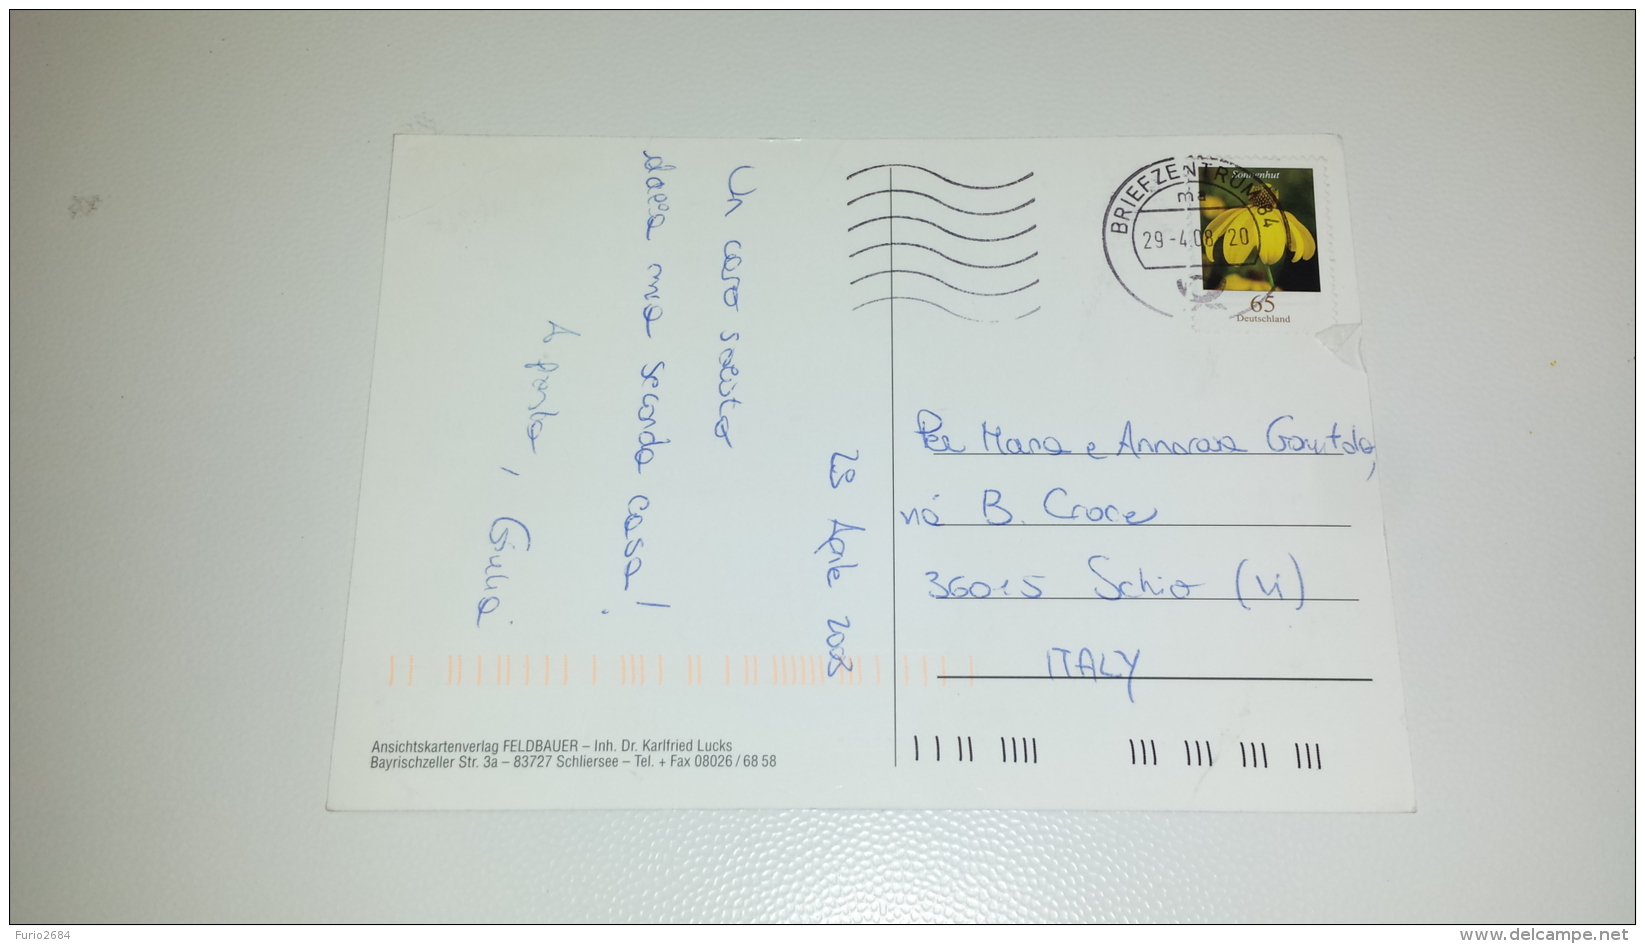 28 Aprile 2008
Un caro saluto
dalla mia seconda casa!
A presto, Giulia
BRIEFZENTRUM 84
ma
29-4.08-20
Sonnenhut
65
Deutschland
Per Mara e Annarosa
via B. Croce
36015 Schio (Vi)
ITALY
Ansichtskartenverlag FELDBAUER – Inh. Dr. Karlfried Lucks
Bayrischzeller Str. 3a – 83727 Schliersee – Tel. + Fax 08026 / 68 58
Furio2684
www.delcampe.net